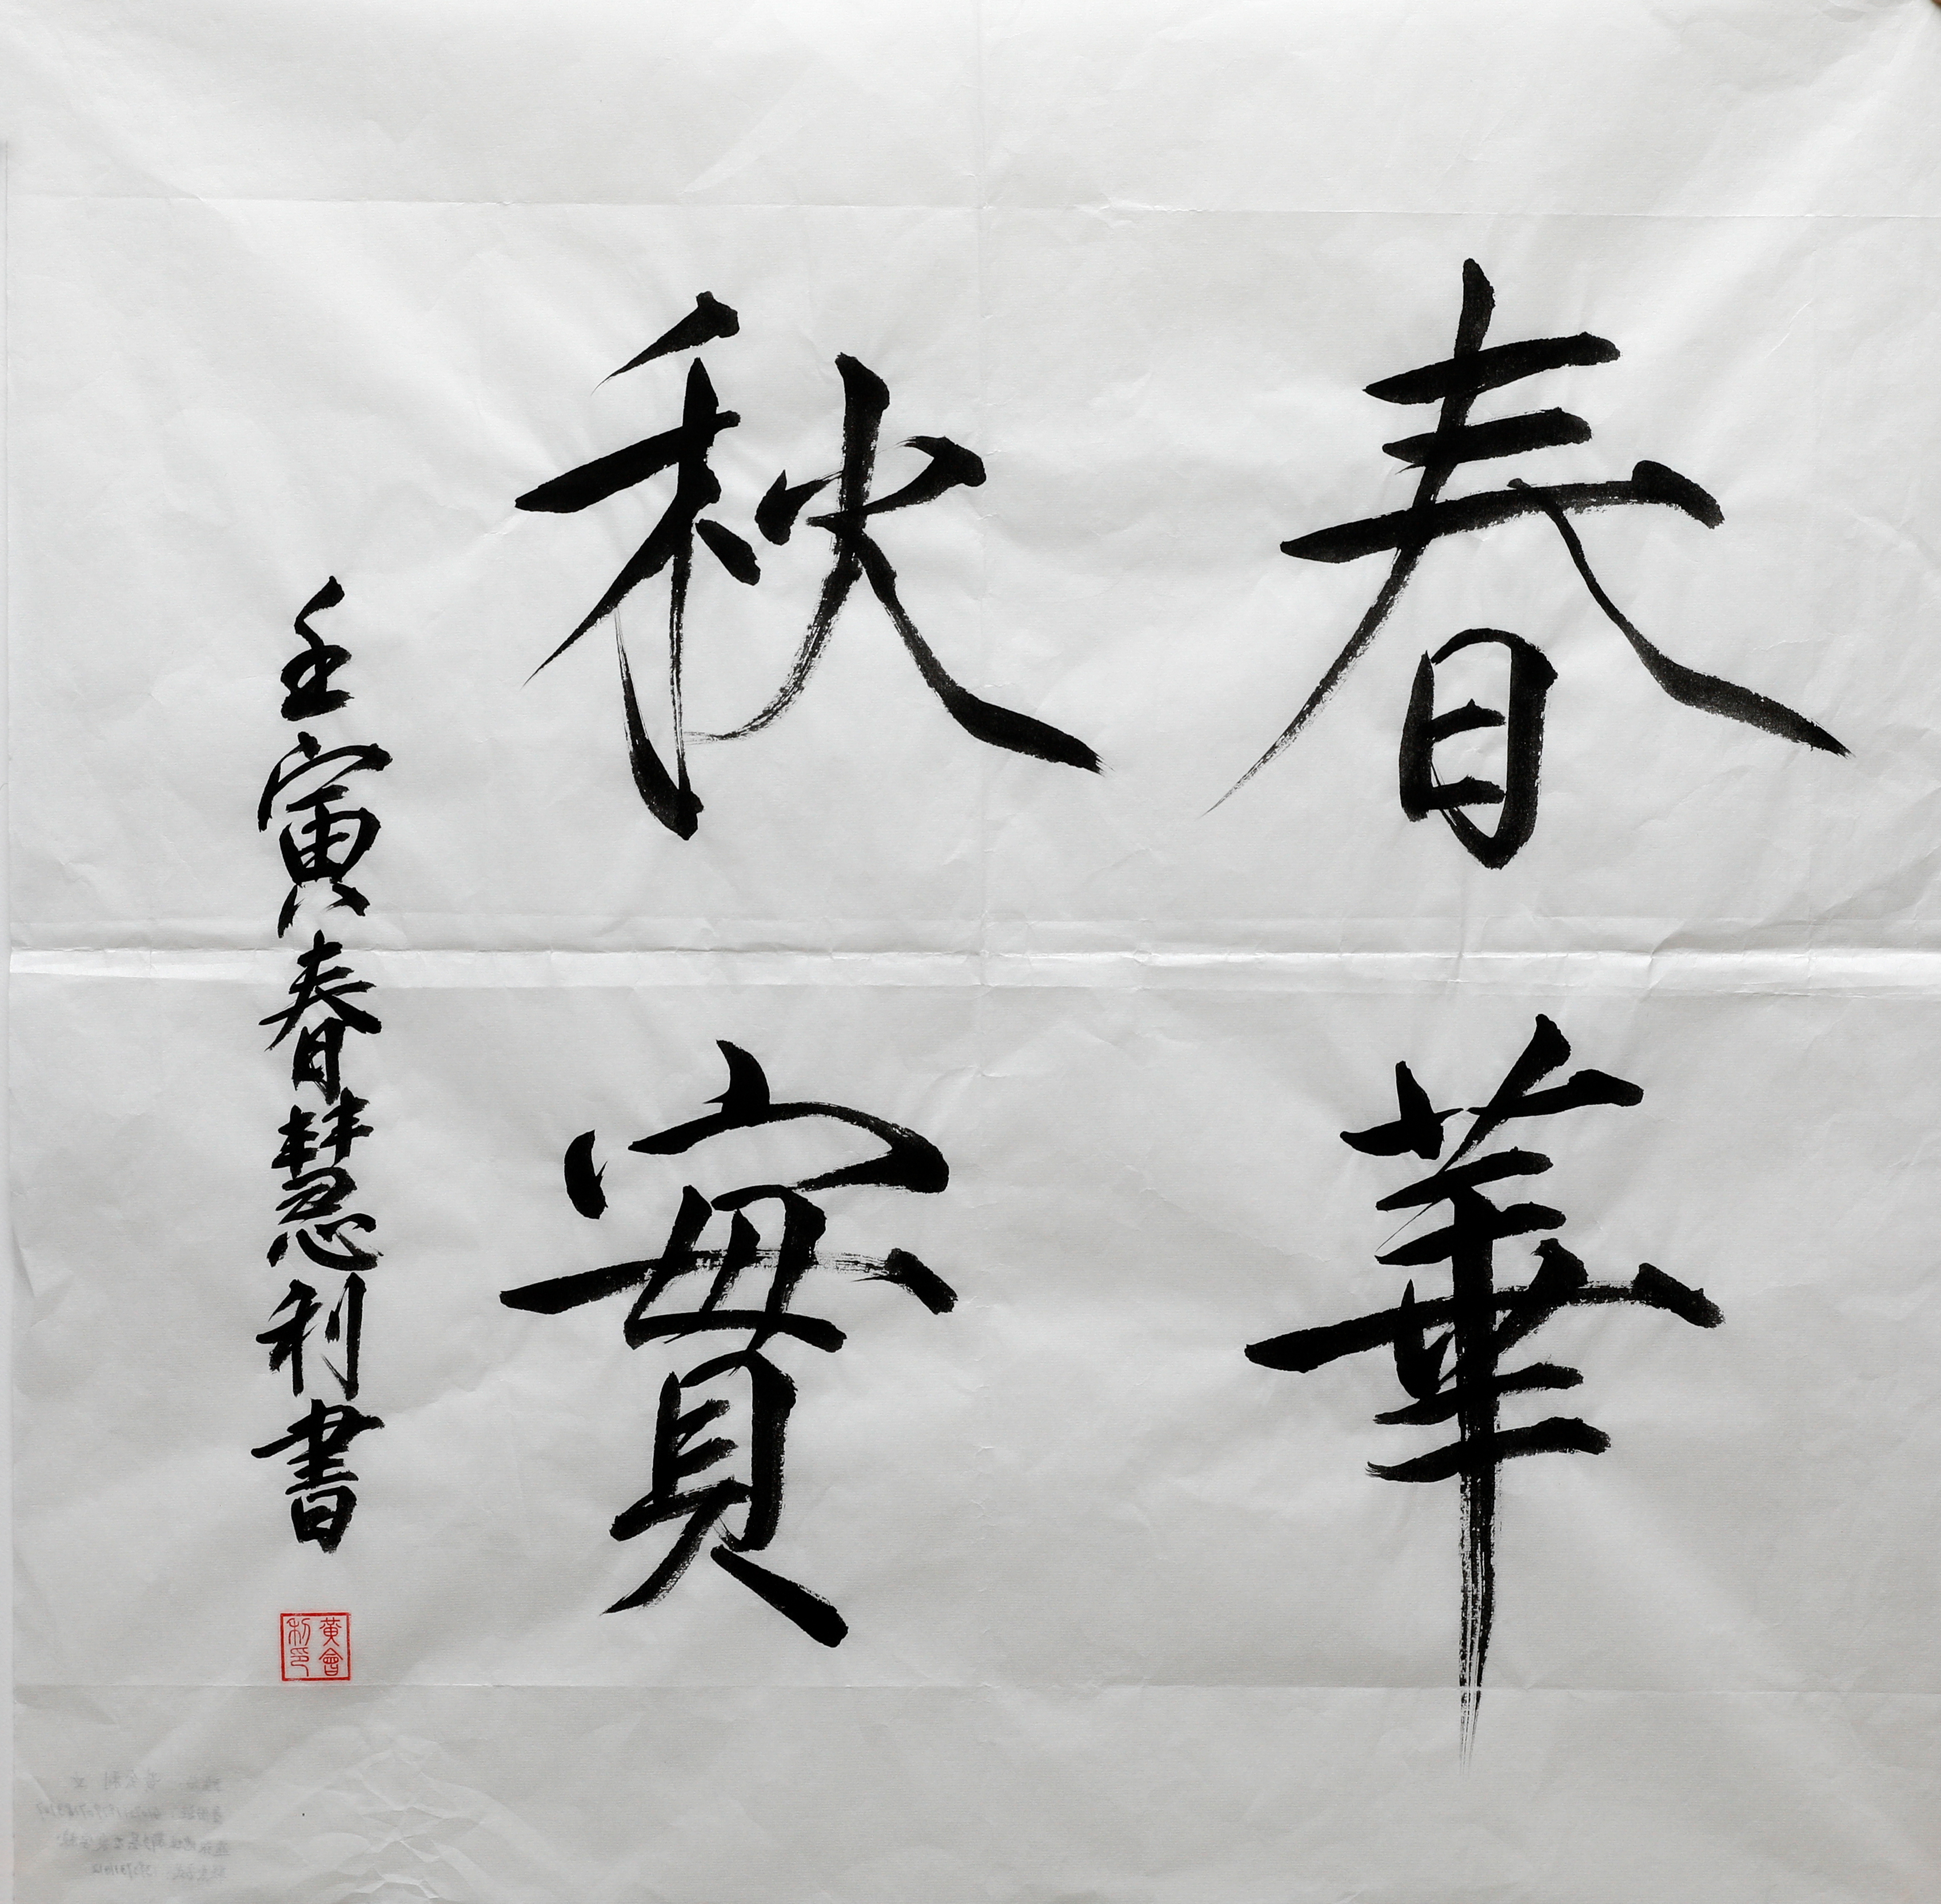 春華
秋實
壬寅春慧利書
黃會
利印